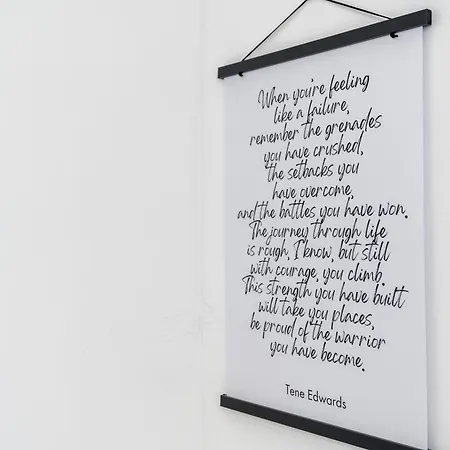 When you're feeling
like a failure,
remember the grenades
you have crushed,
the setbacks you
have overcome,
and the battles you have won.
The journey through life
is rough, I know, but still
with courage, you climb.
This strength you have built
will take you places,
be proud of the warrior
you have become.
Tene Edwards